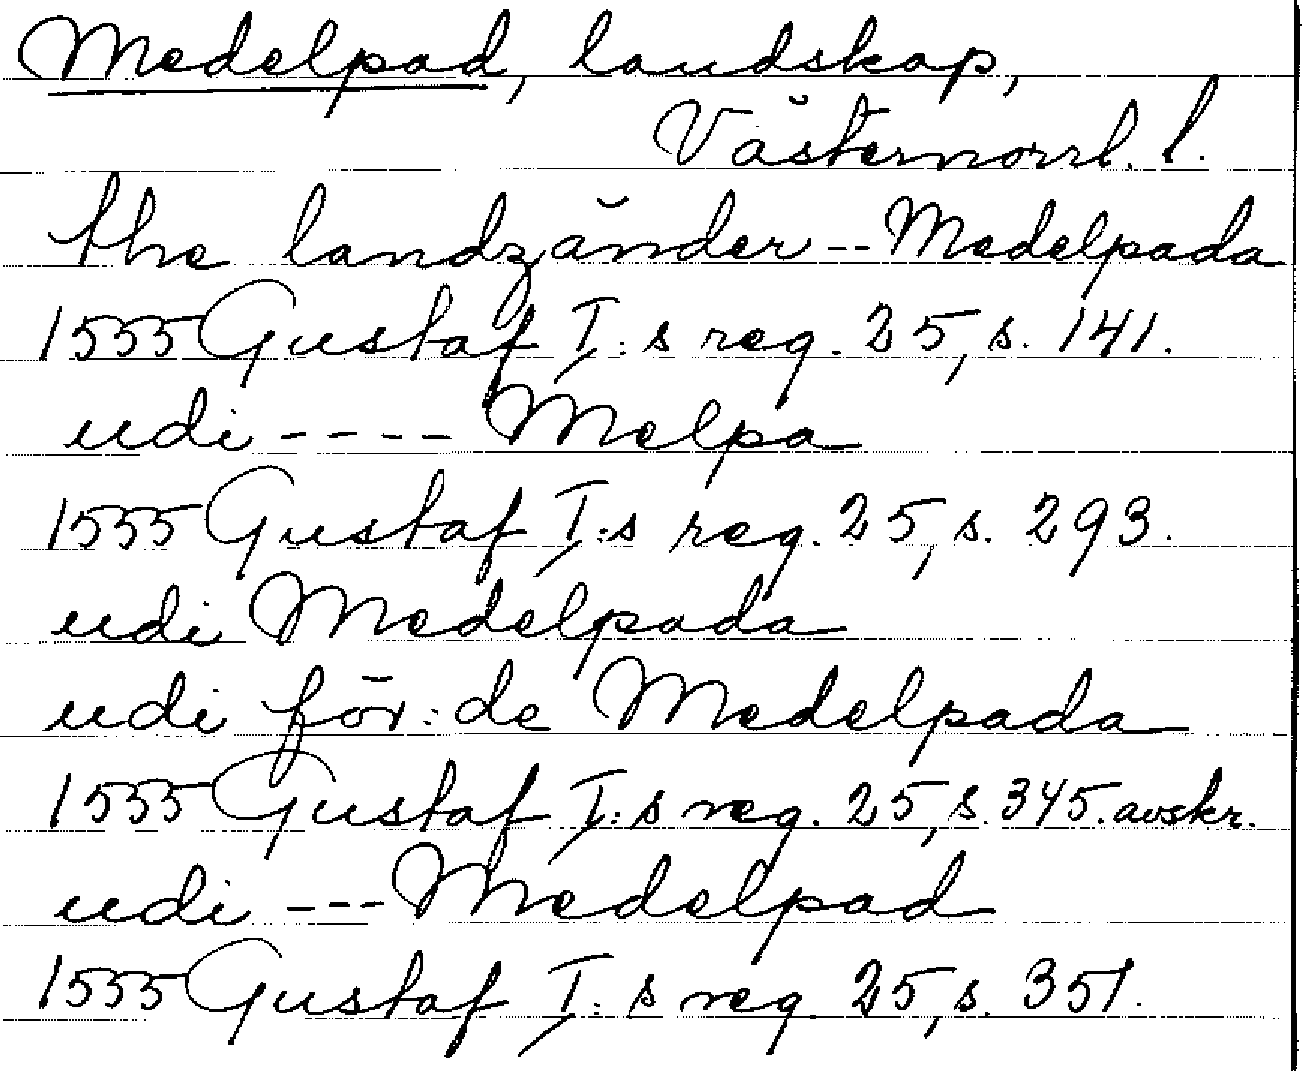 Medelpad, landskap,
Västernorrl. l.
the landzänder -- Medelpada
1555 Gustaf I:s reg. 25, s. 141.
udi ---- Melpa
1555 Gustaf I:s reg. 25, s. 293.
udi Medelpada
udi för:de Medelpada
1555 Gustaf I:s reg. 25, s. 345. avskr.
udi --- Medelpad
1555 Gustaf I:s reg. 25, s. 351.